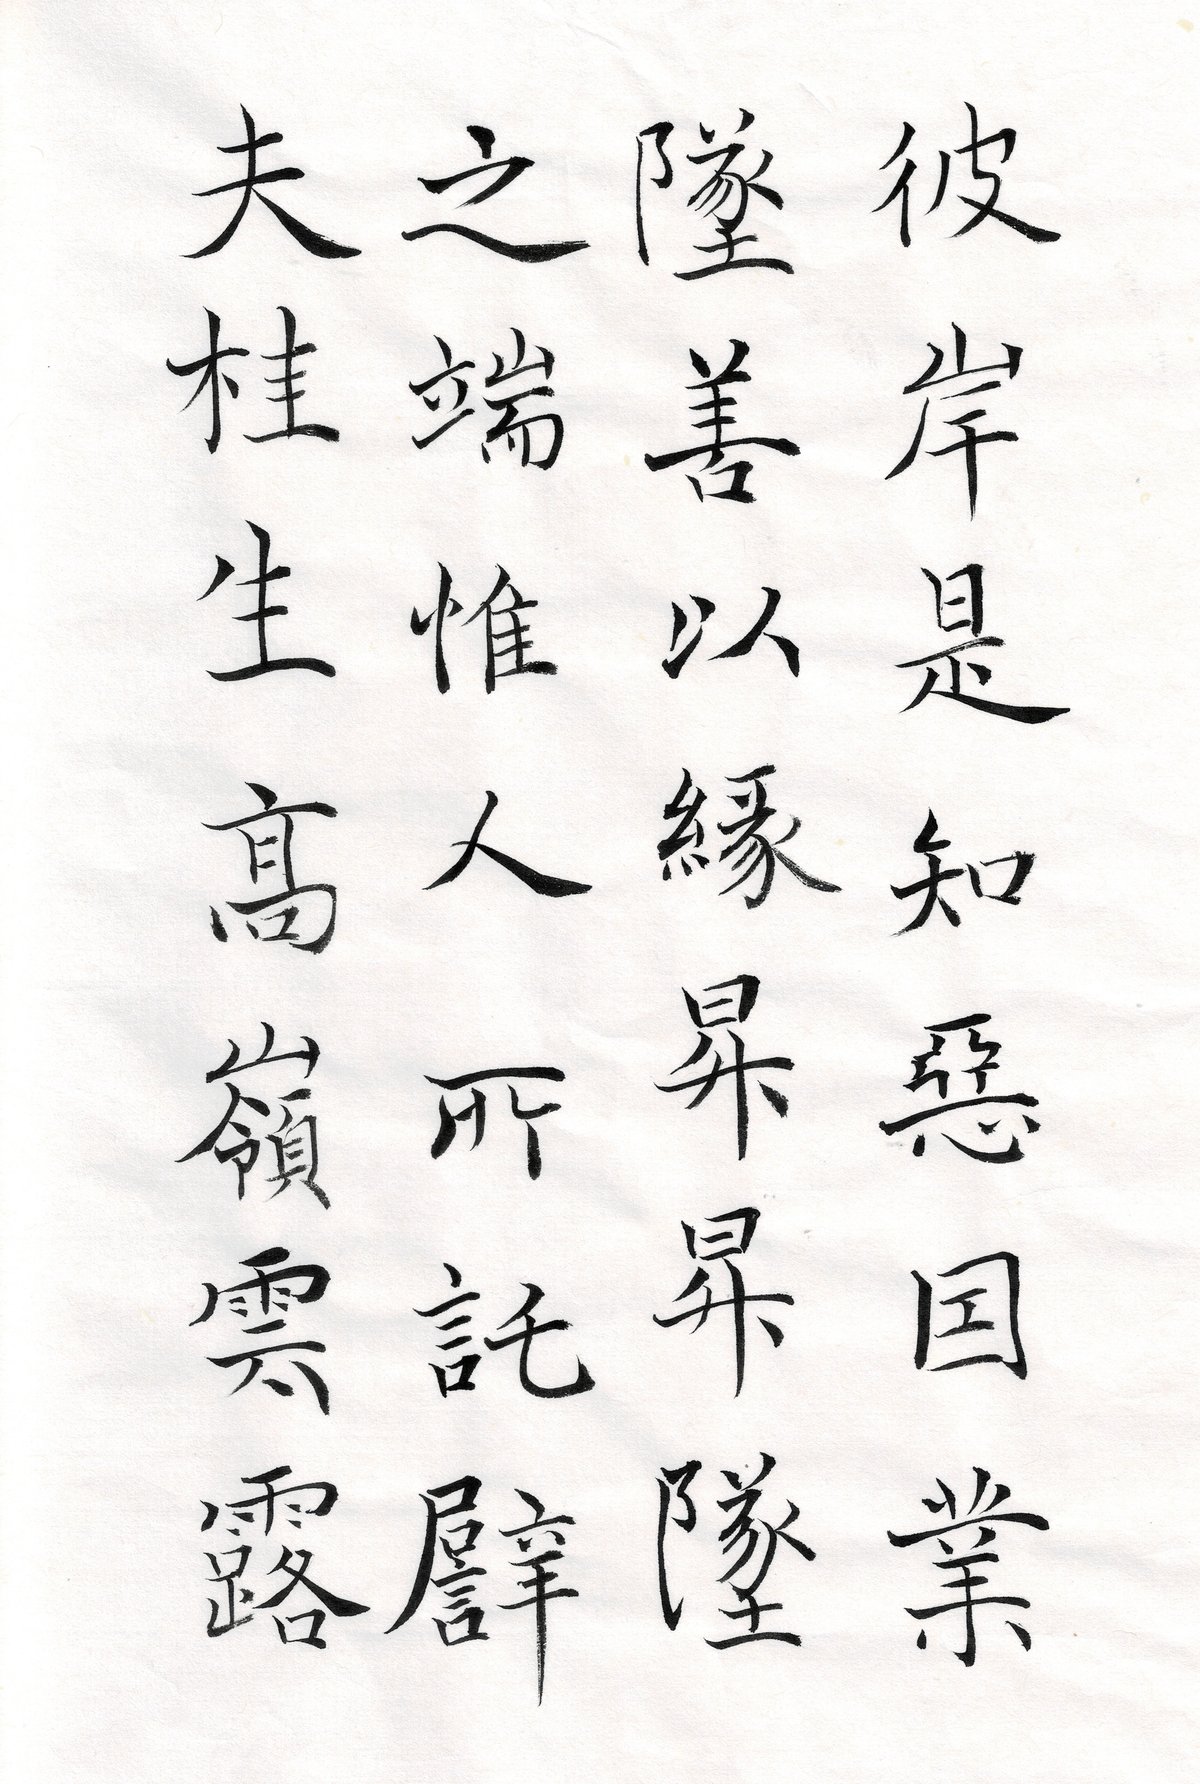 彼岸是知惡因業
墜善以縁昇昇墜
之端惟人所託譬
夫桂生髙嶺雲露